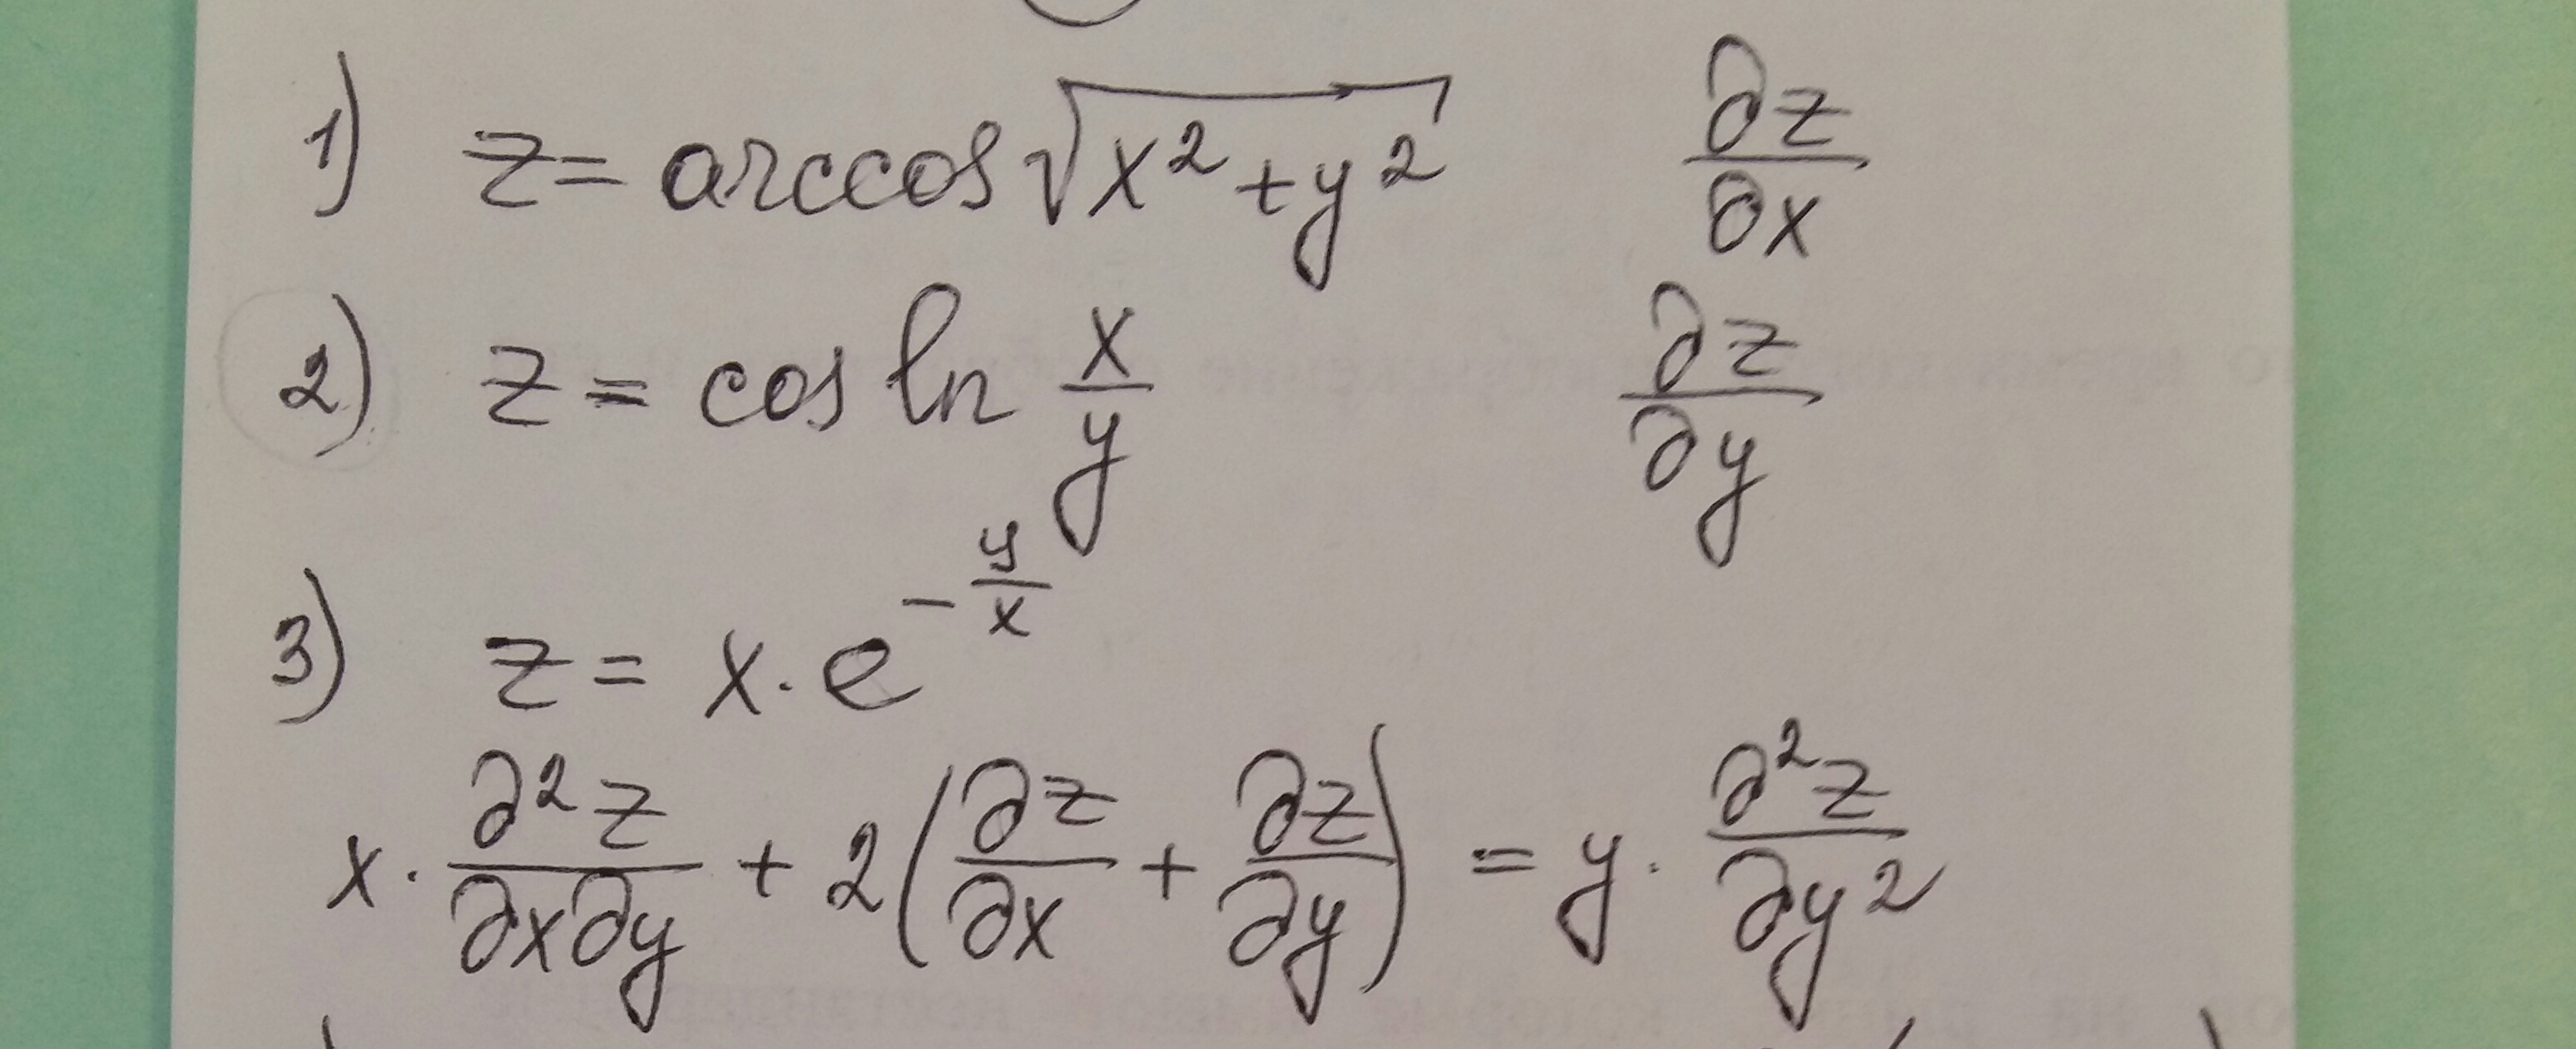 1) z = arccos √(x² + y²) ∂z/∂x
2) z = cos ln x/y ∂z/∂y
3) z = x · e^(-y/x)
x · ∂²z/∂x∂y + 2(∂z/∂x + ∂z/∂y) = y · ∂²z/∂y²